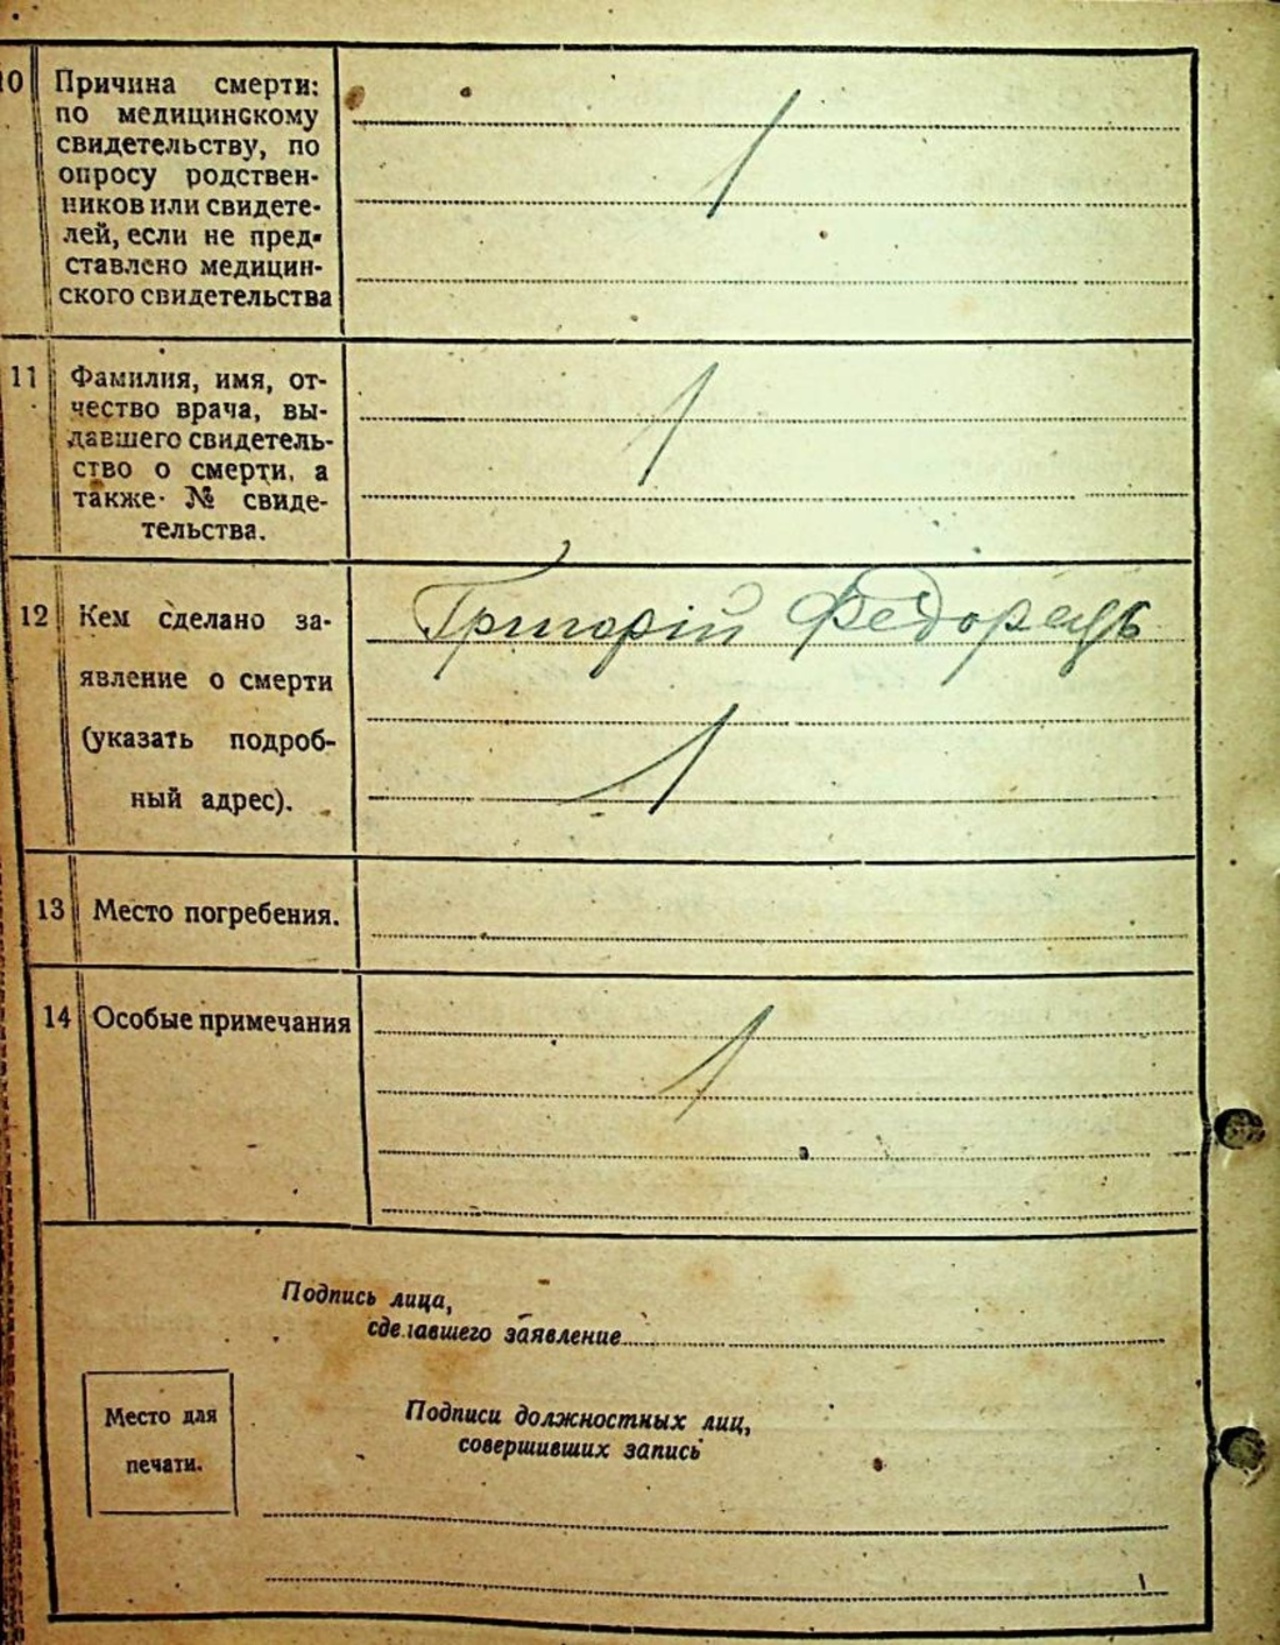 10 Причина смерти:
по медицинскому
свидетельству, по
опросу родствен-
ников или свидете-
лей, если не пред-
ставлено медицин-
ского свидетельства
11 Фамилия, имя, от-
чество врача, вы-
давшего свидетель-
ство о смерти, а
также № свиде-
тельства.
12 Кем сделано за-
Григорій Федорець
явление о смерти
(указать подроб-
ный адрес).
13 Место погребения.
14 Особые примечания
Подпись лица,
сделавшего заявление
Место для
печати.
Подписи должностных лиц,
совершивших запись